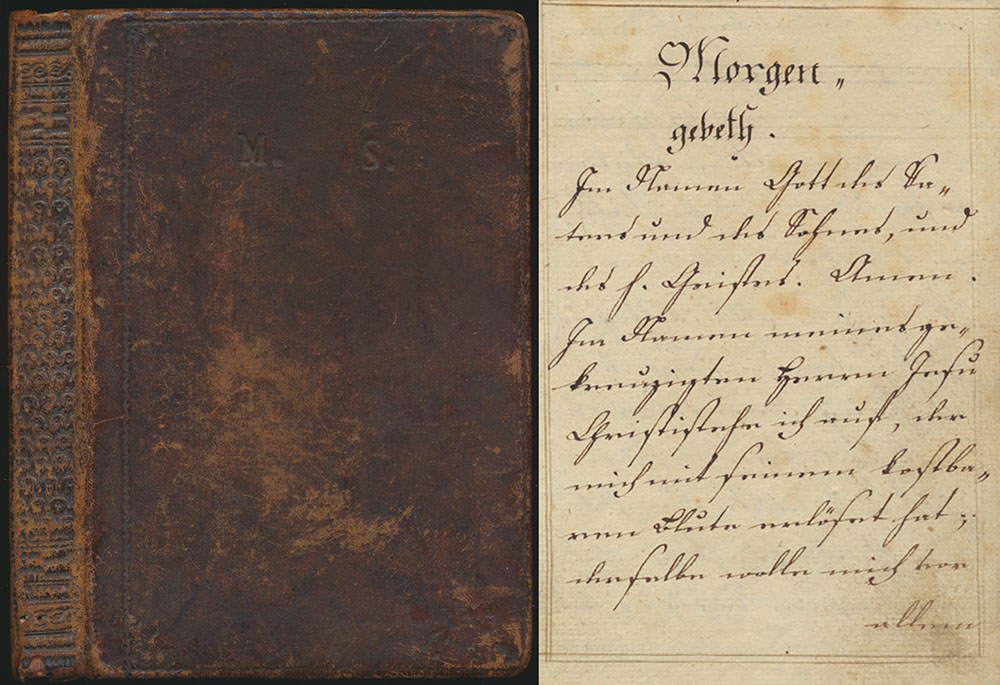 M. S.
Morgen„
gebeth.
Im Namen Gott des Va„
ters und des Sohnes, und
des h. Geistes. Amen.
Im Namen meines ge„
kreuzigten Herrn Jesu
Christi stehe ich auf, der
mich mit seinem kostba„
ren Blute erlöset hat;
derselbe wolle mich vor
allem